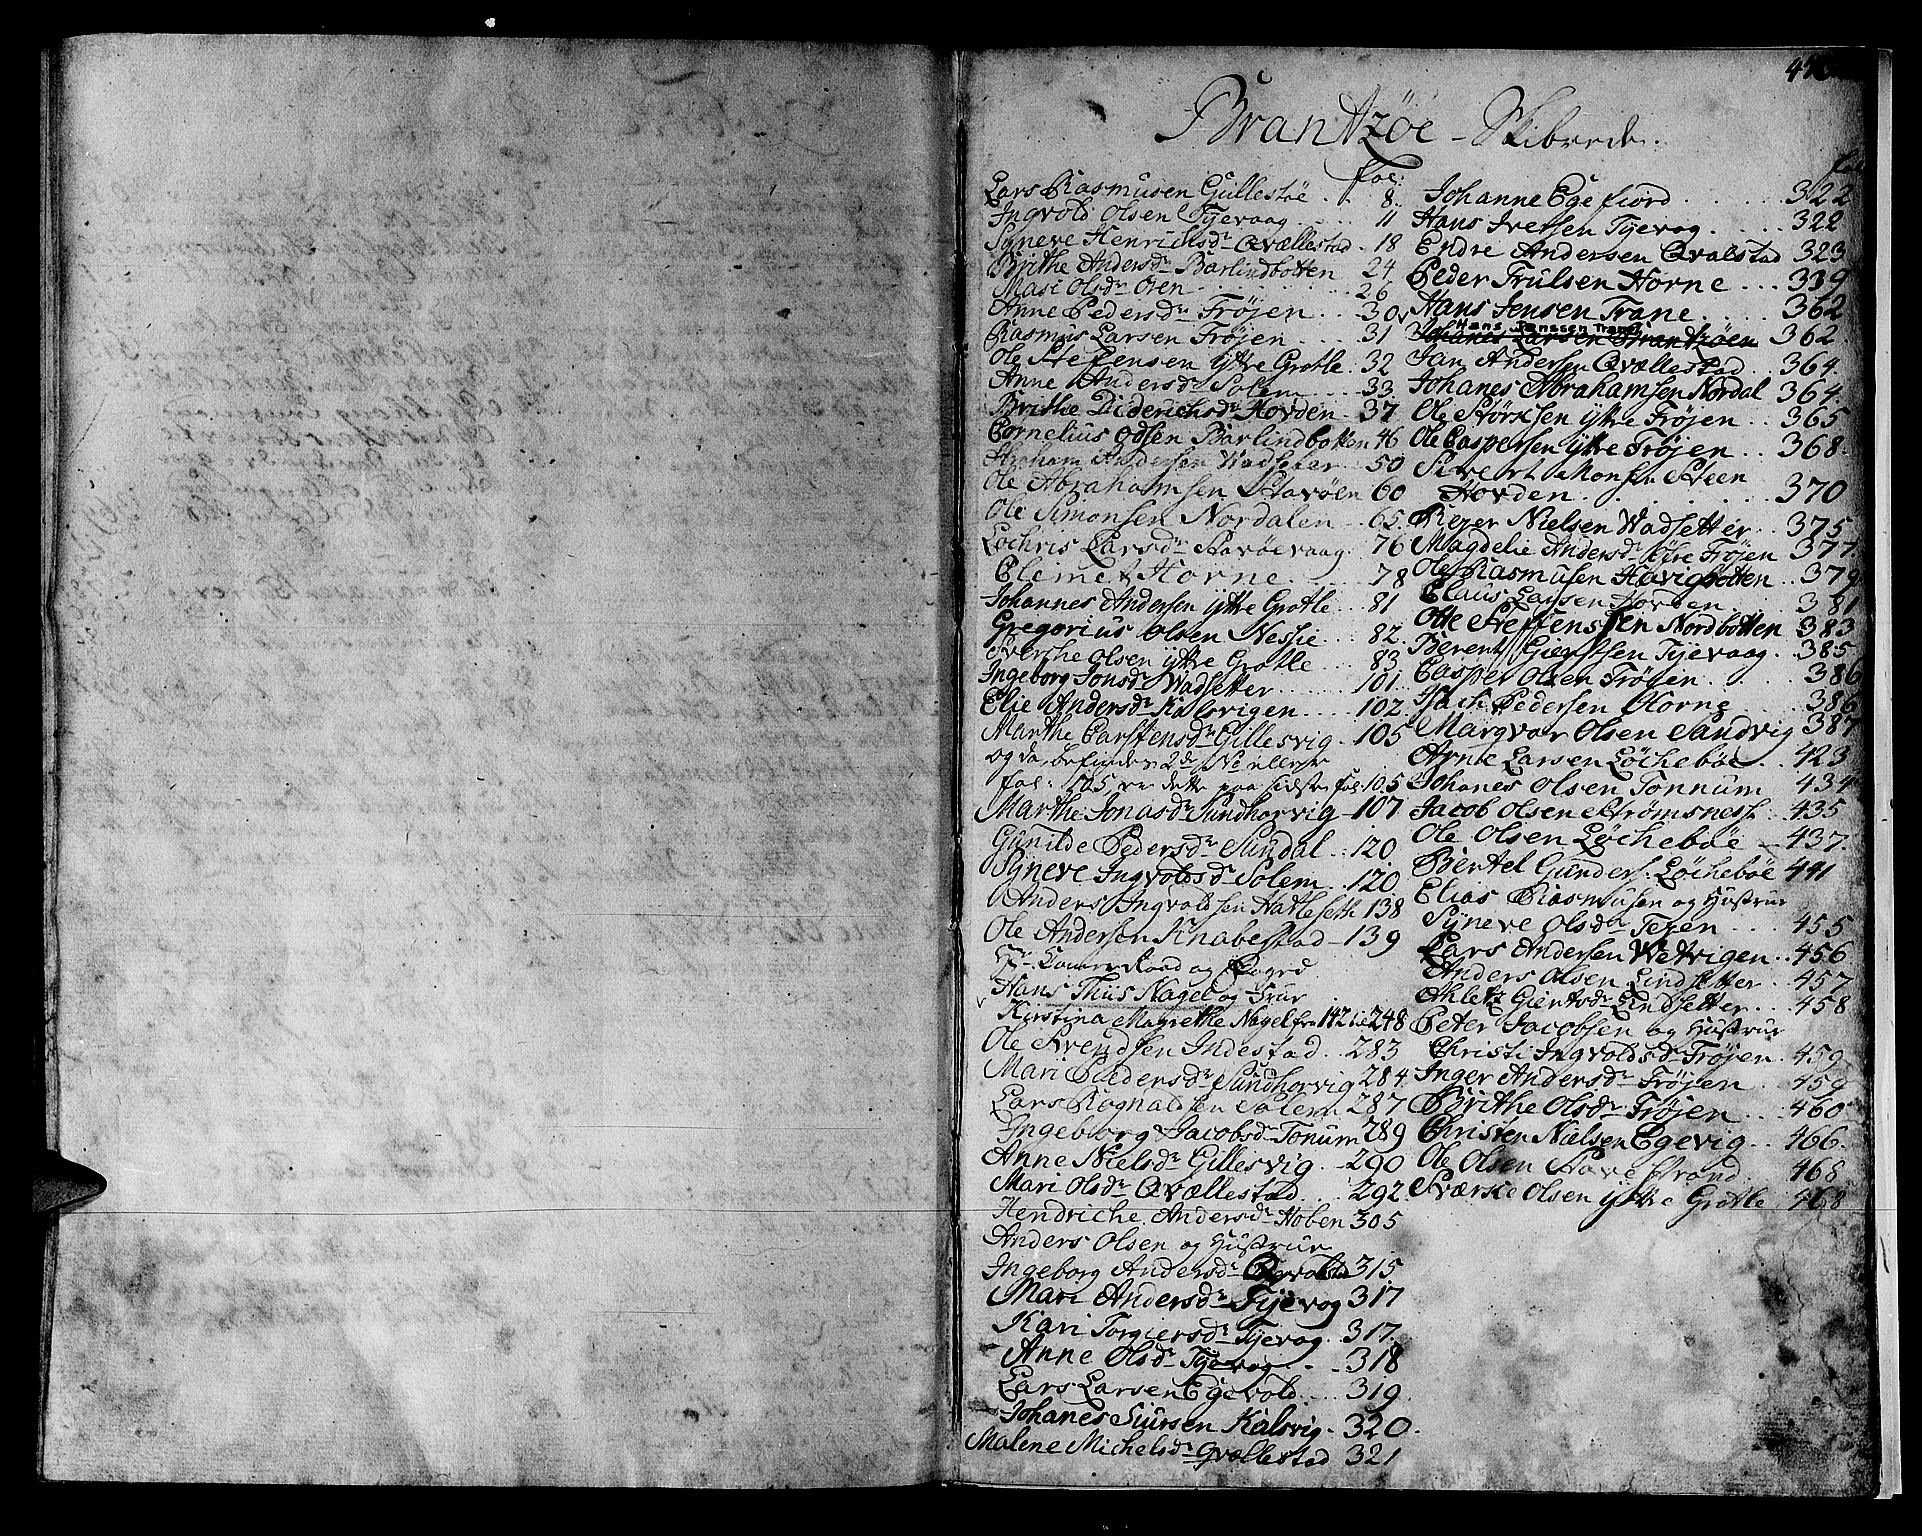 Brantzöe - Skibrede.
fol:
Lars Rasmusen Gullestöe . . 8.
Ingvold Olsen Tyevaag . . . . 11
Syneve Henrichsdr Qvællestad . 18
Brithe Andersdr Barlindbotten 24
Mari Olsdr Osen . . . . . . . 26
Anne Pedersdr Fröjen . . . 30
Rasmus Larsen Fröjen . . . . 31
Ole Steffensen ytre Grotle . 32
Anne Andersdr Solem . . . 33.
Brithe Diderichsdr Hovden . . 37
Cornelius Olsen Barlindbotten 46
Abraham Andersen Wadseter . . 50
Ole Abrahamsen Stavöen 60
Ole Simonsen Nordalen . . 65.
Lochris Larsdr Stavöevaag . 76
Clemet Horne . . . . 78
Johannes Andersen ytre Grotle . . . 81
Gregorius Olsen Nessie . . . 82.
Sverche Olsen ytre Grotle . . . 83
Ingeborg Jonsdr Wadsetter . . . . 101.
Elie Andersdr Kalsvigen . . . 102.
Marthe Carstensdr Gillesvig . 105
og da befindes 2de No ellers
fol: 105 er dette paa sidste fol: 105
Marthe Jonasdr Sundhorvig - 107
Gunilde Pedersdr Sundal . . 120
Syneve Ingvoldsdr Solem . . 120.
Anders Ingvoldsen Hatleseth 138
Ole Andersen Knabestad - 139
Hr Kammer Raad og Foged
Hans Thiis Nagel og Frur
Kirstina Magrethe Nagel fra 142 til 248
Ole Svendsen Indestad . . 283
Mari Pedersdr Sundhorvig 284.
Lars Rognaldsen Solem 287
Ingeborg Jacobsdr Tonum 289
Anne Nielsdr Gillesvig . . 290
Mari Olsdr Qvællestad . . . 292
Hendriche Andersdr Hoben 305
Anders Olsen og Hustrue
Ingeborg Andersdr Qvalstad 315
Mari Andersdr Tyevog 317
Kari Torgiersdr Tyevog . 317.
Anne Olsdr Tyevog . . . 318
Lars Larsen Egevold . . . 319.
Johanes Siursen Kalsvig . 320.
Malene Michelsdr Qvallestad 321
Johanne Egefiord . . . . . 322
Hans Iversen Tyevog . . . . 322
Endre Andersen Qvalstad 323
Peder Trulsen Horne . . . 339
Hans Jensen Trane . . . . 362
Hans Janssen Trane
Johanes Larsen Brantzöen 362.
Jan Andersen Qvællestad . . 364.
Johanes Abrahamsen Nordal 364.
Ole Störksen ytre Fröjen . . 365
Ole Caspersen ytre Fröjen . . 368.
Sivert Monsen Steen
Hovden . . . . . . . . 370
Rejer Nielsen Wadsetter . . 375.
Magdelie Andersdr ytre Fröjen 377.
Ole Rasmusen Havigbotten . . 379.
Claus Larsen Hovden . . . . 381
Otte Steffensen Nordbotten 383
Berent Giertsen Tyevaag . 385
Casper Olsen Fröjen . . . . . 386
Isach Pedersen Horne . . . . 386
Margvor Olsen Sandvig 387
Arne Larsen Löcheböe . . . 423
Johanes Olsen Tonnum 434
Jacob Olsen Strömsness . . 435
Ole Olsen Löcheböe . . 437.
Bertel Gunders. Löcheböe 441
Elias Rasmusen og Hustrue
Syneve Olsdr Tejen . . . 455
Lars Andersen Wetvigen . . 456
Anders Olsen Lindsetter . . 457
Ahlet Giertsdr Lindsetter . . . 458
Peter Jacobsen og Hustrue
Christi Ingvoldsdr Fröjen . . 459
Inger Andersdr Fröjen . . . 459
Brithe Olsdr Fröjen . . . 460
Christen Nielsen Egevig . . 466.
Ole Olsen Stavestrand . . 468
Sværke Olsen ytre Grotle . . 468